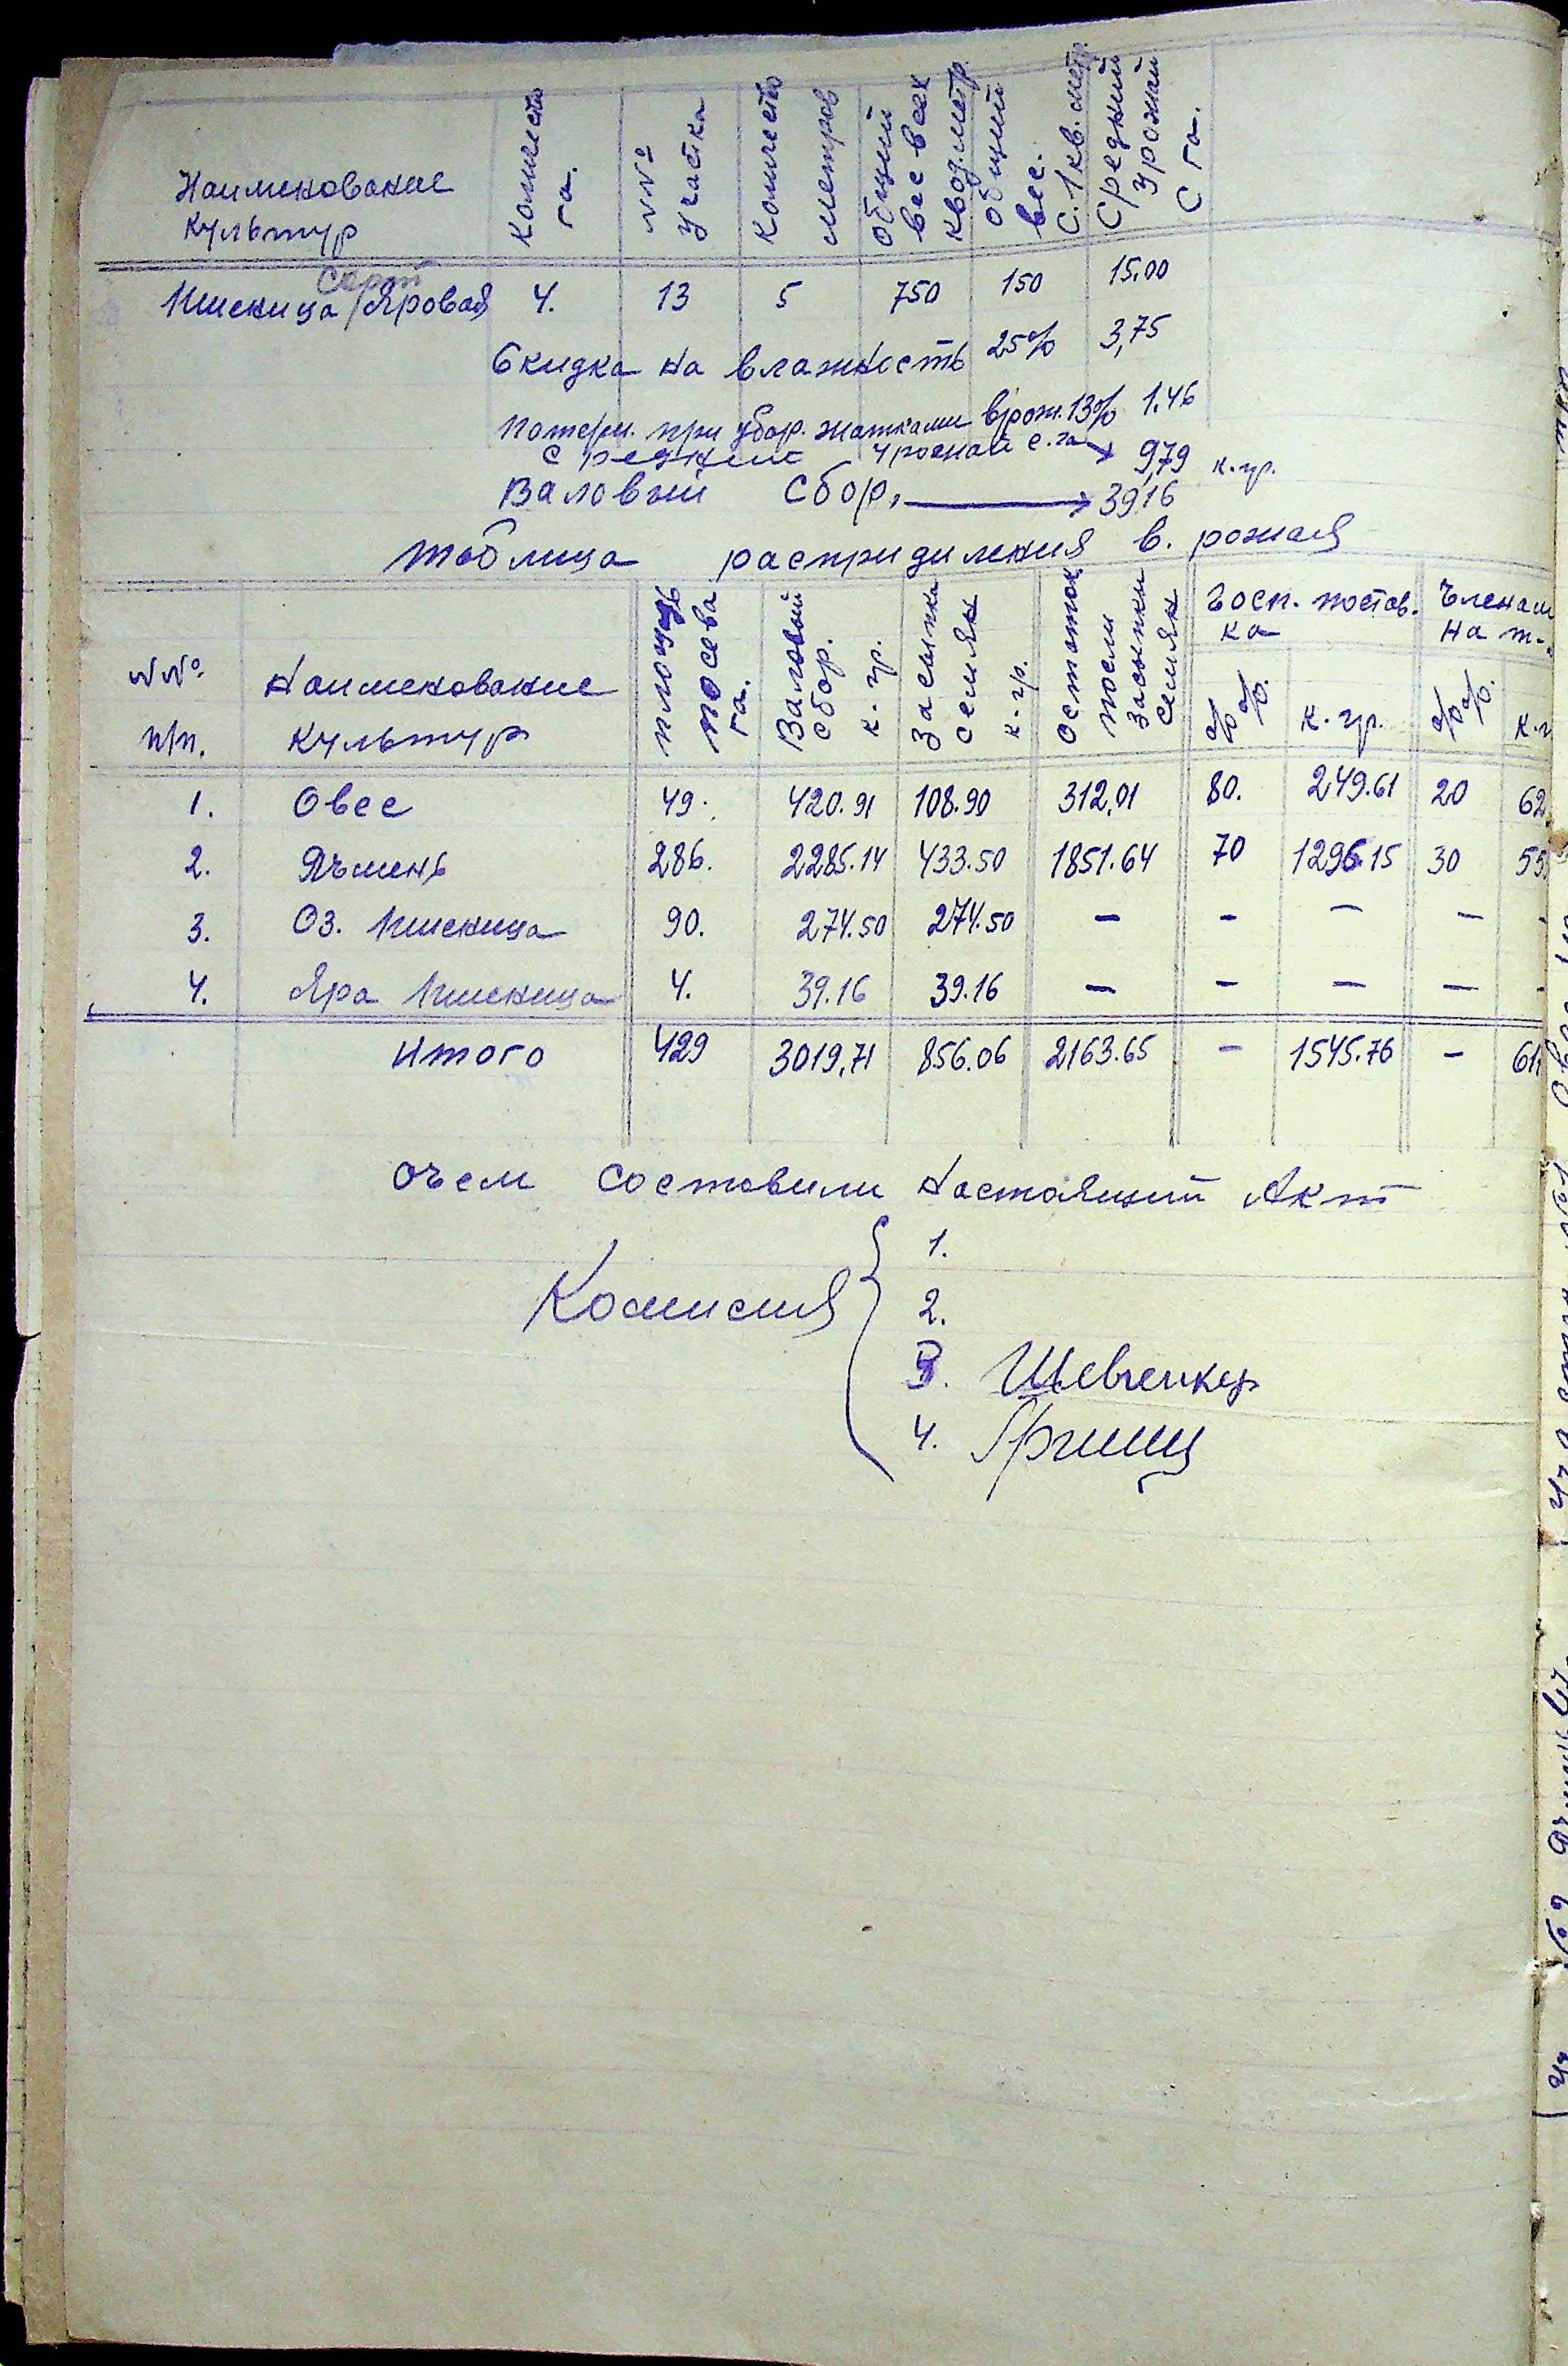 Наименование культур | Количество га. | №№ участка | Количество метров | Общий вес всех квод. метр. | Общий вес. с. 1 кв. метр. | Средний урожай с га.
Пшеница / Яровая | 4. | 13 | 5 | 750 | 150 | 15.00
Скидка на влажность 25% 3,75
Потери. при убор. жатками врож. 13% 1.46
Средние урожай с. га → 9,79 к. гр.
Валовый сбор, → 39.16
Таблица распридиления в. рожая
№№ п/п. | Наименование культур | площадь посева га. | Валовый сбор. к. гр. | Засыпка семян к. гр. | Остаток посли засыпки семян | Госп. постав.ка %%. к. гр. | Членам на т-. %%.
1. | Овес | 49. | 420.91 | 108.90 | 312,01 | 80. | 249.61 | 20 | 62
2. | Ячмень | 286. | 2285.14 | 433.50 | 1851.64 | 70 | 1296.15 | 30 | 55
3. | Оз. Пшеница | 90. | 274.50 | 274.50 | – | – | – | –
4. | Яра Пшеница | 4. | 39.16 | 39.16 | – | – | – | –
Итого | 429 | 3019,71 | 856.06 | 2163.65 | – | 1545.76 | – | 61
Очем составили настоящий Акт
Комисия
1.
2.
3. Шевченко
4.